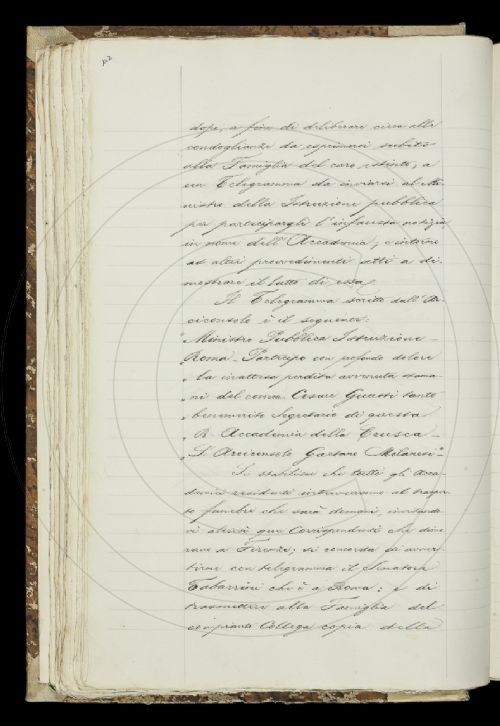 dopo, a fine di deliberare circa alle
condoglianze da esprimersi subito
alla Famiglia del caro estinto, a
un Telegramma da inviarsi al Mi-
nistro della Istruzione pubblica
per partecipargli l'infausta notizia
in nome dell'Accademia, e intorno
ad altri provvedimenti atti a di-
mostrare il lutto di essa.
Il Telegramma scritto dall'Ar-
ciconsolo è il seguente:
"Ministro Pubblica Istruzione -
Roma - Partecipo con profondo dolore
" la inattesa perdita avvenuta stama-
" ni del comm. Cesare Guasti tanto
" benemerito Segretario di questa
" R. Accademia della Crusca -
" L'Arciconsolo Gaetano Milanesi"-
Si stabilisce che tutti gli Acca-
demici residenti intervengano al traspor-
to funebre che sarà domani, invitando-
vi altresì que' Corrispondenti che dimo-
rano a Firenze; si concorda di avver-
tirne con telegramma il Senatore
Tabarrini che è a Roma: e di
trasmettere alla Famiglia del
compianto Collega copia della